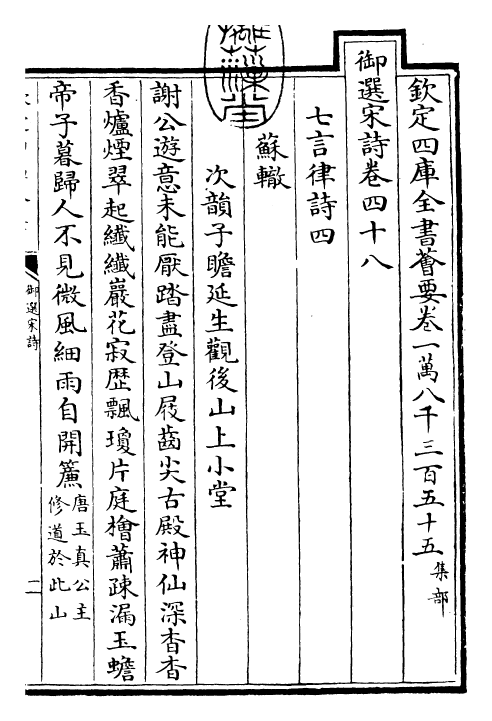 欽定四庫全書薈要卷一萬八千三百五十五 集部
御選宋詩卷四十八
七言律詩四
蘇轍
次韻子瞻延生觀後山上小堂
謝公遊意未能厭踏盡登山屐齒尖古殿神仙深杳杳
香爐煙翠起纖纖巖花寂歷飄瓊片庭檜蕭疎漏玉蟾
帝子暮歸人不見微風細雨自開簾唐玉真公主修道於此山
御選宋詩